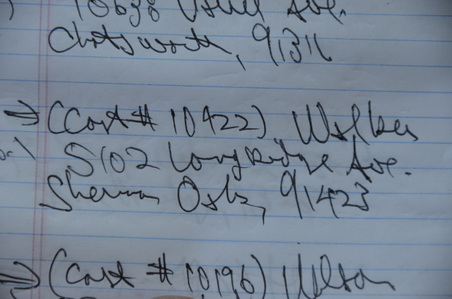 10638 Ave.
Chatsworth, 91311
⇒ (Cust # 10422) Walker
5102 Longridge Ave.
Sherman Oaks, 91423
⇒ (Cust # 10196) Wilson